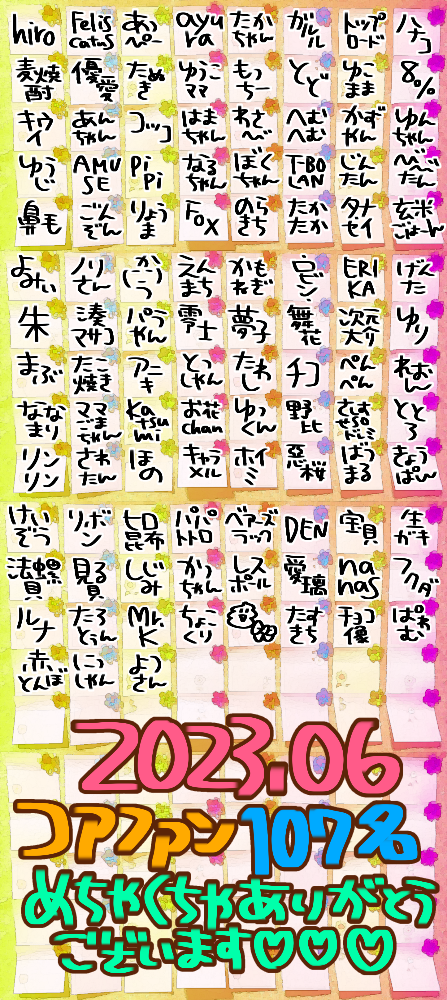 hiro Felis catus あっぺー ayura たかちゃん ガルル トップロード ハナコ
麦焼酎 優愛 たぬき ゆうこママ もっちー とど ゆこまま 8%
キウイ あんちゃん コッコ はまちゃん わさべ〜 へむへむ かずやん ゆんちゃん
ゆうじ AMUSE PiPi なるちゃん ぼくちゃん T-BOLAN じんたん べべたん
鼻毛 ごんぞん りょうま Fox のらきち たかたか タナセイ 玄米ごはーん
よみぃ ノリさん えんまち かもねぎ ロビン ERIKA げんた
朱 湊マサコ パうやん 零士 夢子 舞花 次元大介 ゆり
まぶ たこ焼き アニキ とっしゃん たわし チコ ぺんぺん れおん
ななまり ママごまちゃん Katsumi お花chan ゆっくん 野比 ととろ
リンリン さわたん ほの キャラメル ホイミ 惡桜 ばうまる きょうぱん
けいぞう リボン 昆布 パパトトロ ベアーズラック DEN 宝貝 生ガキ
法螺貝 見る貝 しじみ かっちゃん レスポール 愛璃 nanas フクダ
ルナ たろとぅん Mr.K ちょこくり たすきち チョコ像 ぱわむ
赤とんぼ にっしゃん ようさん
2023.06
コアファン107名
めちゃくちゃありがとう
ございます♡♡♡